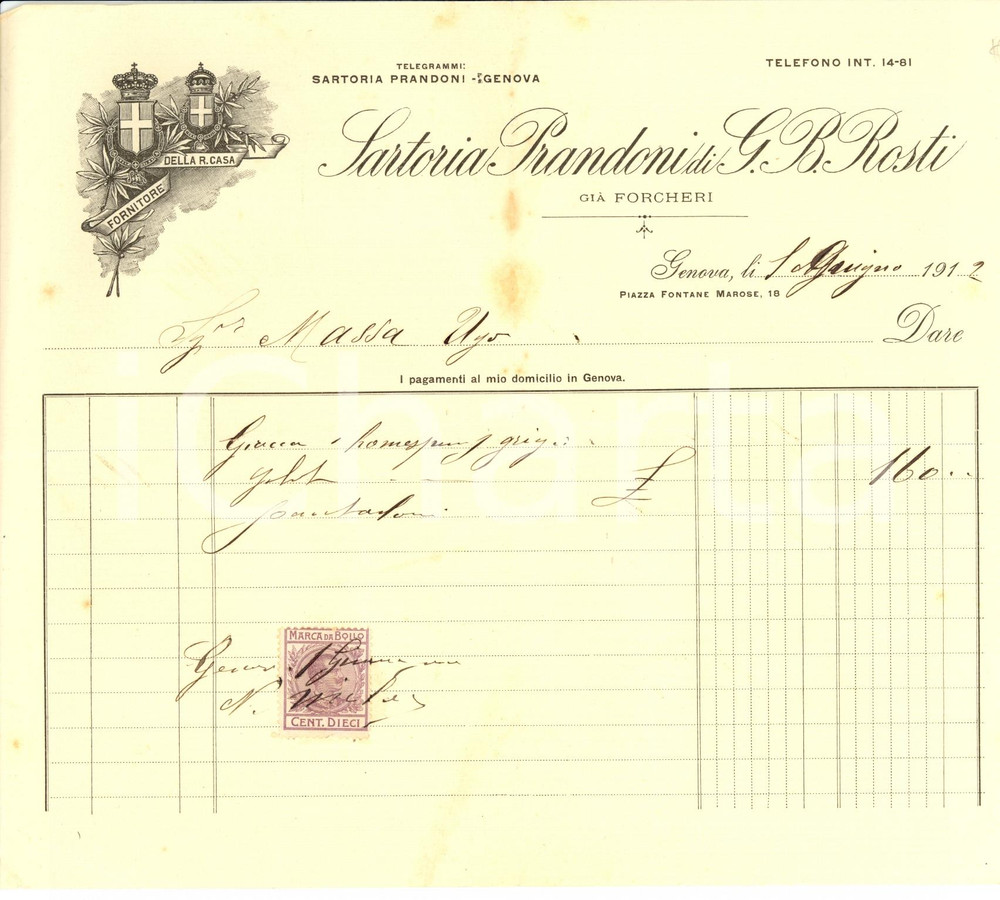 TELEGRAMMI:
SARTORIA PRANDONI - GENOVA
TELEFONO INT. 14-81
FORNITORE DELLA R. CASA
Sartoria Prandoni di G. B. Rosti
GIÀ FORCHERI
Genova, li 1 Giugno 1912
PIAZZA FONTANE MAROSE, 18
Sigr Massa Ugo Dare
I pagamenti al mio domicilio in Genova.
Giacca homespun grigio
Gilet £ 160
Pantaloni
MARCA DA BOLLO
Genova 1 Giugno
N.
CENT. DIECI
iCharta